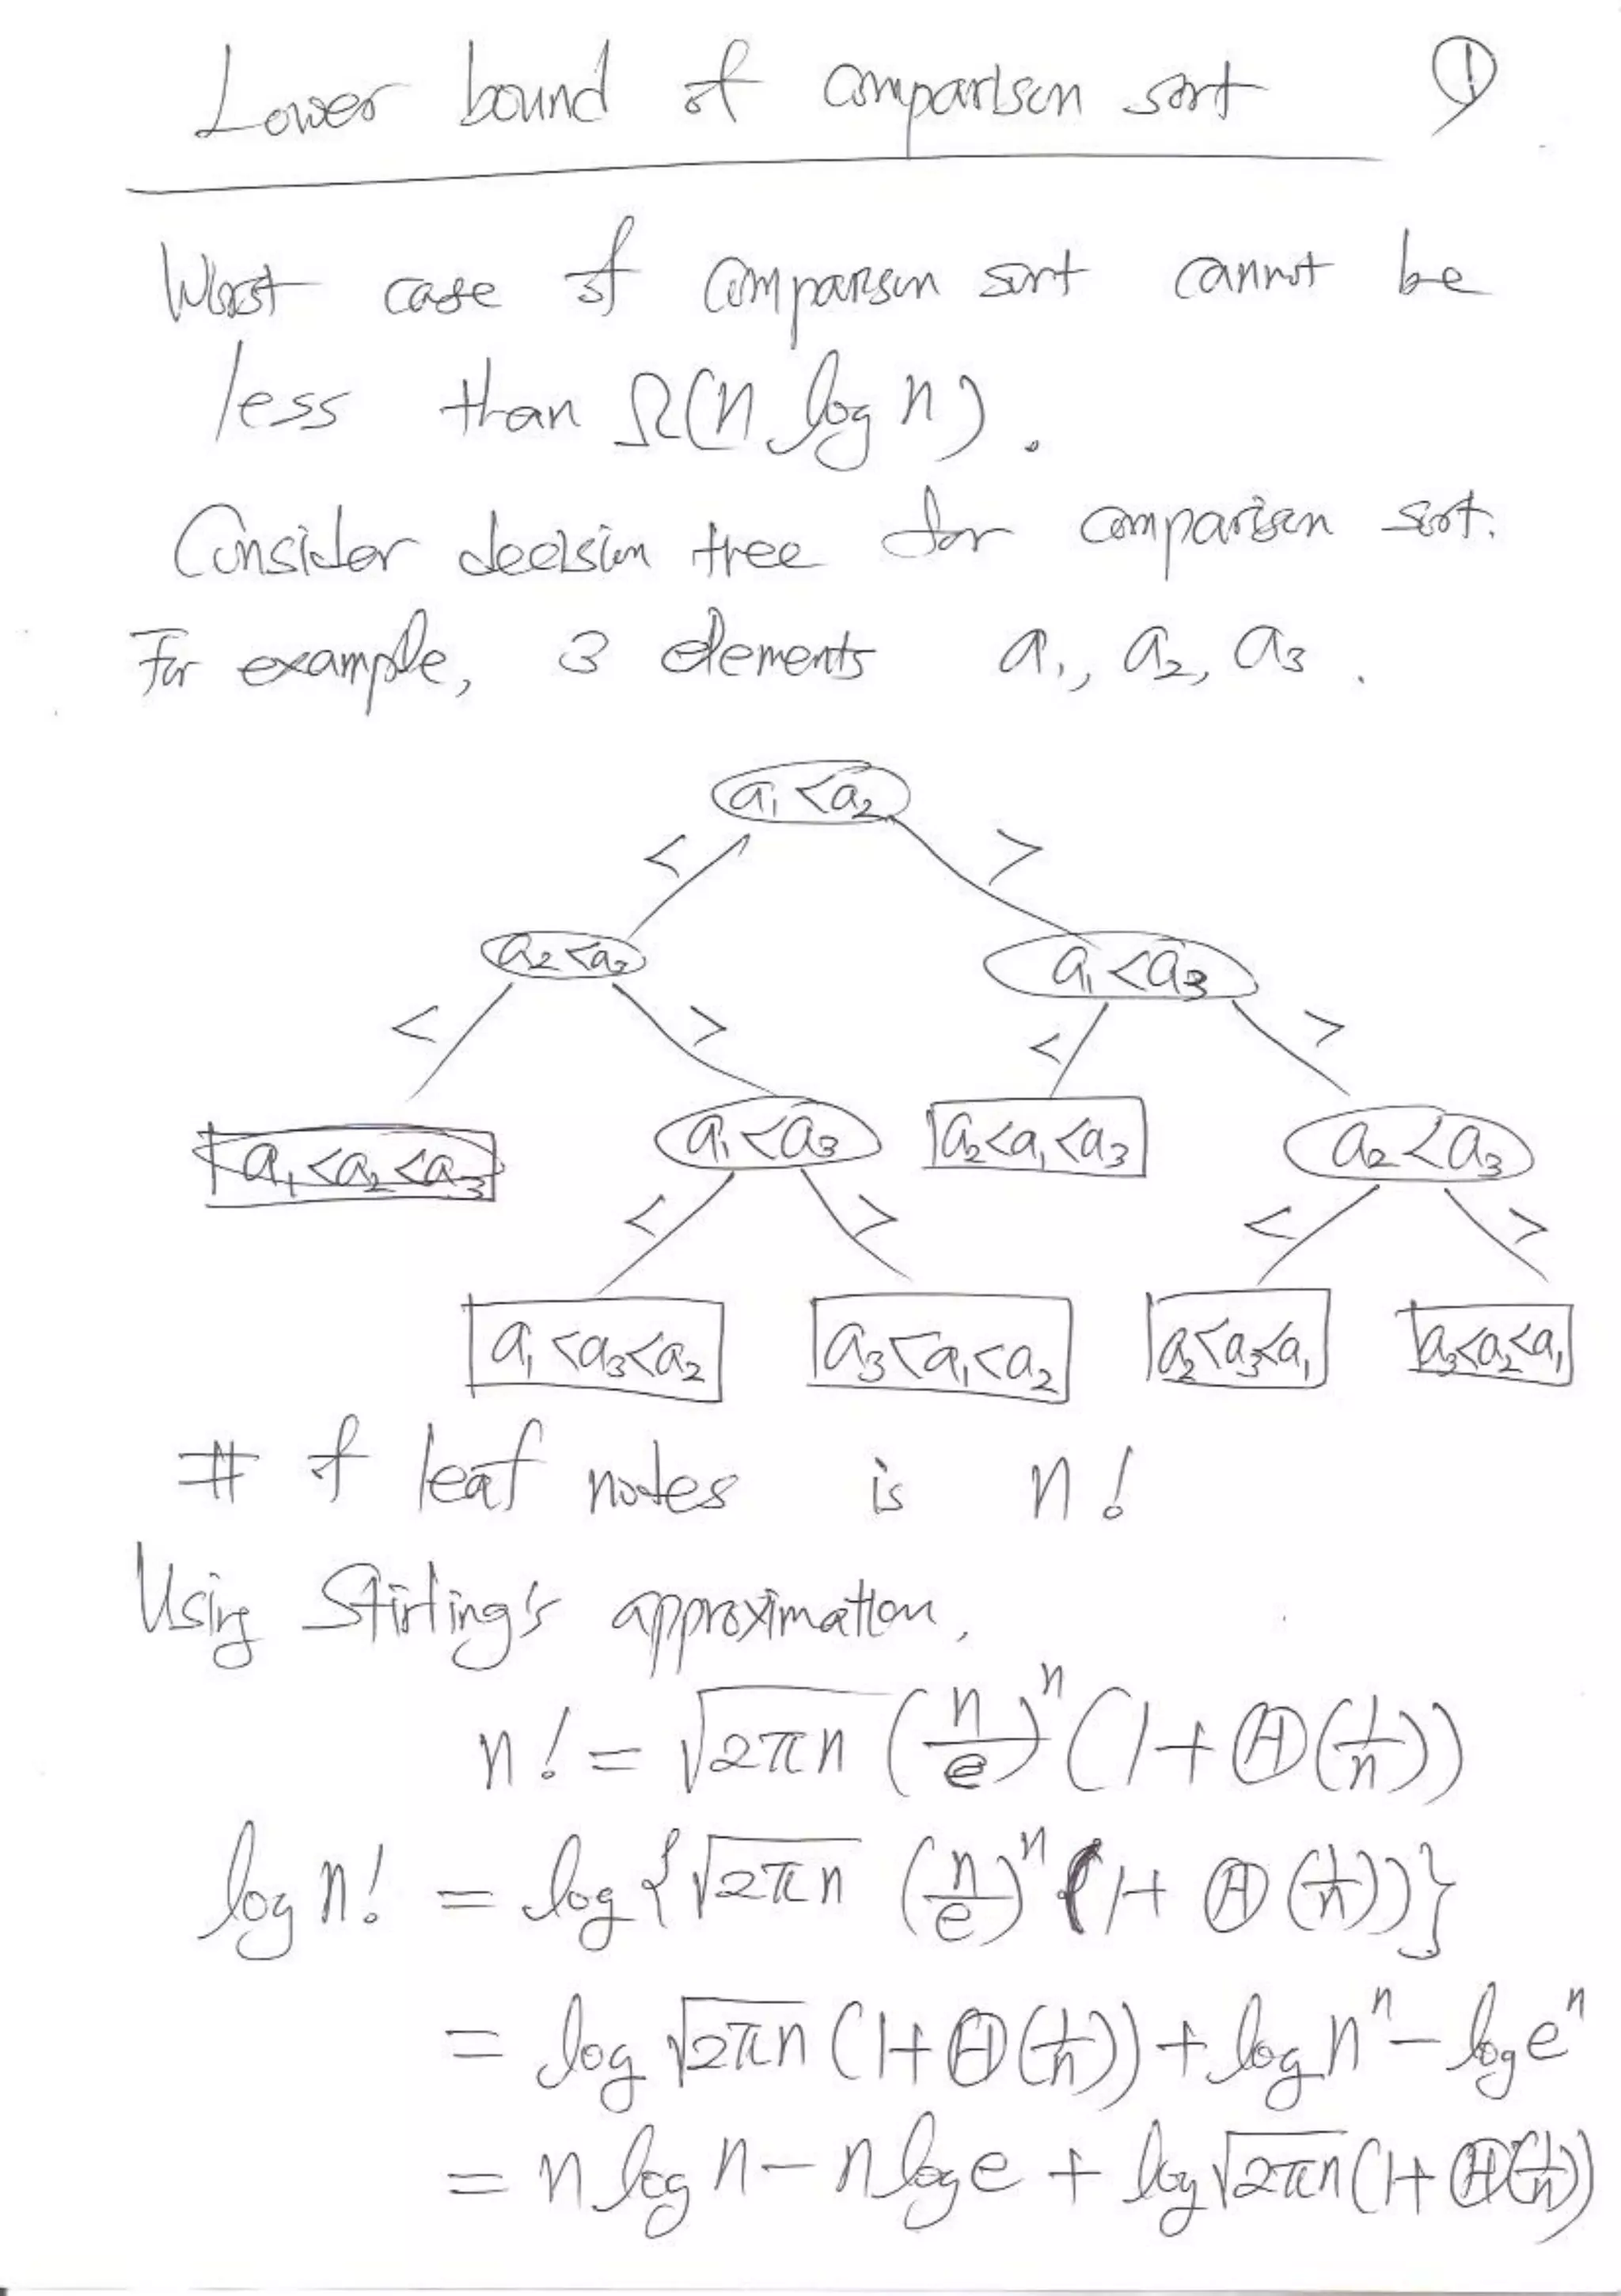 Lower bound of comparison sort ①
Worst case of comparison sort cannot be
less than Ω(n log n).
Consider decision tree for comparison sort.
For example, 3 elements a₁, a₂, a₃.
a₁ < a₂
< >
a₂ < a₃ a₁ < a₃
< > < >
a₁ < a₂ < a₃ a₁ < a₃ a₂ < a₁ < a₃ a₂ < a₃
< > < >
a₁ < a₃ < a₂ a₃ < a₁ < a₂ a₂ < a₃ < a₁ a₃ < a₂ < a₁
# of leaf notes is n!
Using Stirling's approximation,
n! = √(2πn) (n/e)ⁿ (1 + Θ(1/n))
log n! = log{√(2πn) (n/e)ⁿ (1 + Θ(1/n))}
= log √(2πn) (1 + Θ(1/n)) + log nⁿ − log eⁿ
= n log n − n log e + log √(2πn) (1 + Θ(1/n))